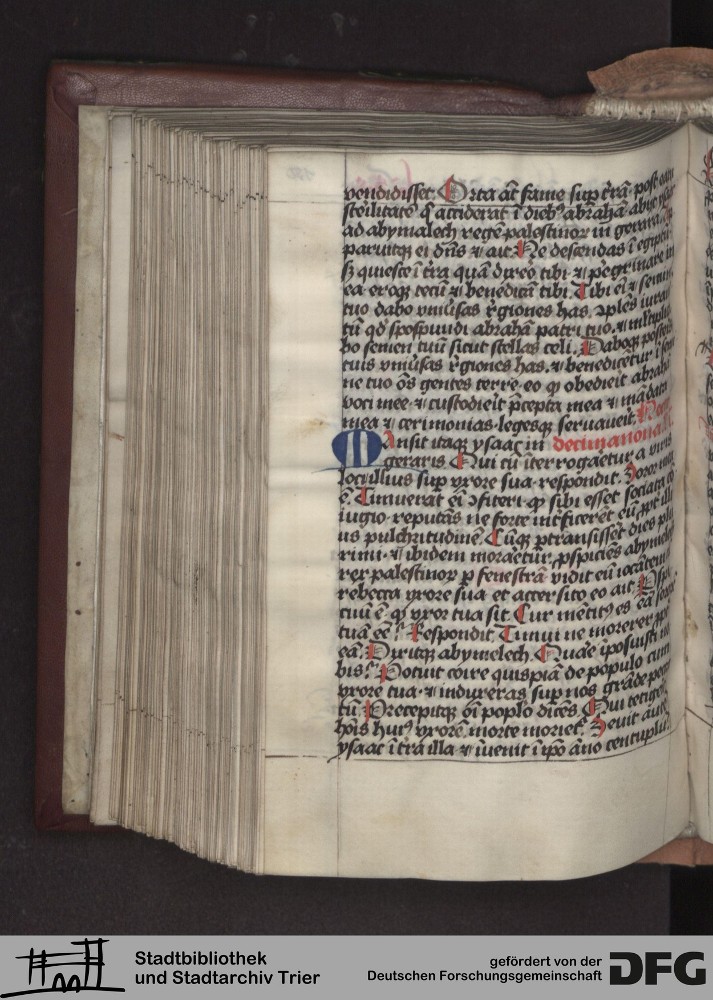 vendidisset. Orta aūt fame sup t̄rā. post eam
st̄ilitatē q̄ acciderat ī dieb9 abrahā. abijt ysaac
ad abymalech regē palestinor in gerara.
paruitq ei dn̄s ⁊ ait. Ne descendas ī egiptū
sꝫ quiesce ī t̄ra quā dixero tibi. ⁊ pegrinare in
ea. eroq tecū ⁊ benedicā tibi. Tibi ei ⁊ semini
tuo dabo vniūsas r̄giones has. ɔplēs iuram
tū qd̄ spospundi abrahā patri tuo. ⁊ multiplica
bo semen tuū sicut stellas celi. Daboq posteris
tuis vniūsas r̄giones has. ⁊ benedicētur ī semi
ne tuo ōs gentes terre. eo q obedieit abrahā
voci mee. ⁊ custodieit p̄cepta mea ⁊ mādata
mea ⁊ cerimonias. legesq seruaueit.
Mansit itaq ysaac in decima nona
geraris. Qui cū īterrogaetur a viris
loci illius sup vxore sua. respondit. Soror mea
ē. Timuerat ei ɔfiteri. q sibi esset sociata cō
iugio. reputās ne forte int̄ficerēt eū ppt illi
us pulchritudinē. Cūq ptransissēt dies plu
rimi. ⁊ ibidem moraētur. pspiciēs abymelech
rex palestinor p fenestrā. vidit eū iocātem cū
rebecca vxore sua. et accersito eo ait. Pspi
cuū ē q vxor tua sit. Cur mētit9 es eā sororē
tuā eē? Respondit. Timui ne morerer ppt
eā. Dixitq abymelech. Quare īposuisti no
bis? Potuit coire quispiā de populo cum
vxore tua. ⁊ induxeras sup nos grāde pecca
tū. Precepitq oī poplo dicēs. Qui tetigerit
hoīs hui9 vxorē. morte moriet. Seuit autē
ysaac ī t̄ra illa. ⁊ īuenit ī ipō āno centuplū.
Stadtbibliothek
und Stadtarchiv Trier
gefördert von der
Deutschen Forschungsgemeinschaft
DFG